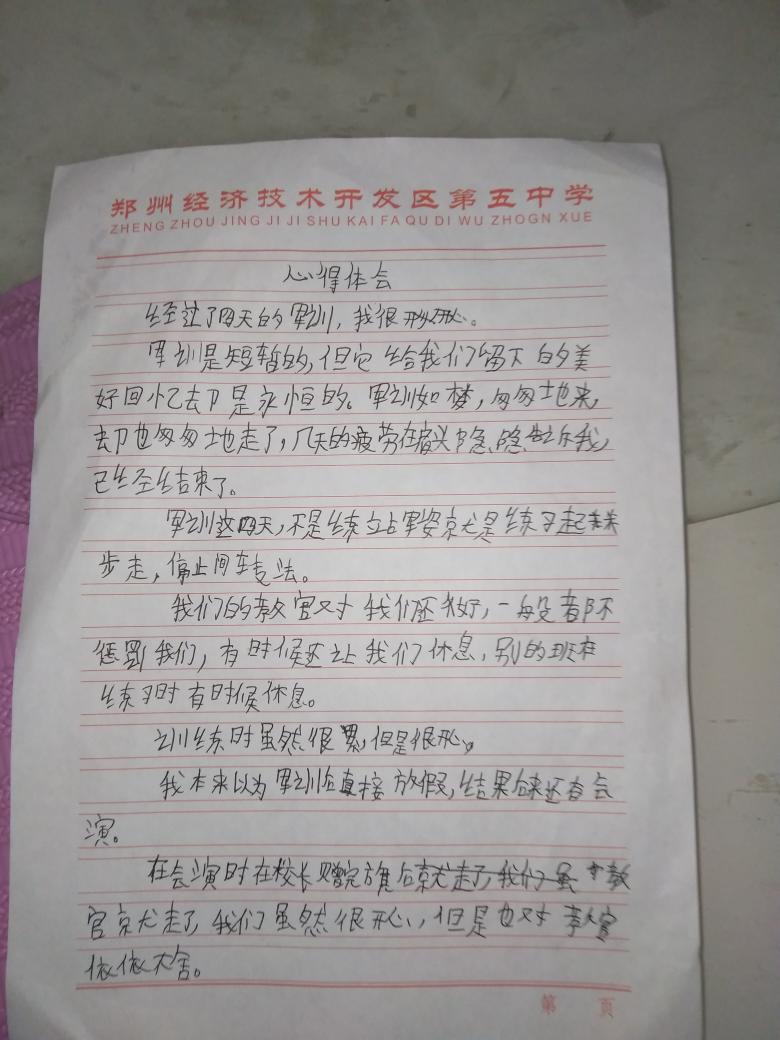 郑州经济技术开发区第五中学
ZHENG ZHOU JING JI JI SHU KAI FA QU DI WU ZHOGN XUE
心得体会
经过了四天的军训，我很开心。
军训是短暂的，但它给我们留下的美
好回忆却是永恒的。军训如梦，匆匆地来，
却也匆匆地走了，几天的疲劳在隐隐告诉我，
已经结束了。
军训这四天，不是练立占军姿就是练习起来
步走，停止间转法。
我们的教官对我们还好，一般都不
惩罚我们，有时候还让我们休息，别的班在
练习时有时候休息。
训练时虽然很累，但是很开心。
我本来以为军训后直接放假，结果后来还有会
演。
在会演时在校长赠完旗后就走了，我们虽 教
官就走了，我们虽然很开心，但是也对教官
依依大舍。
第 页